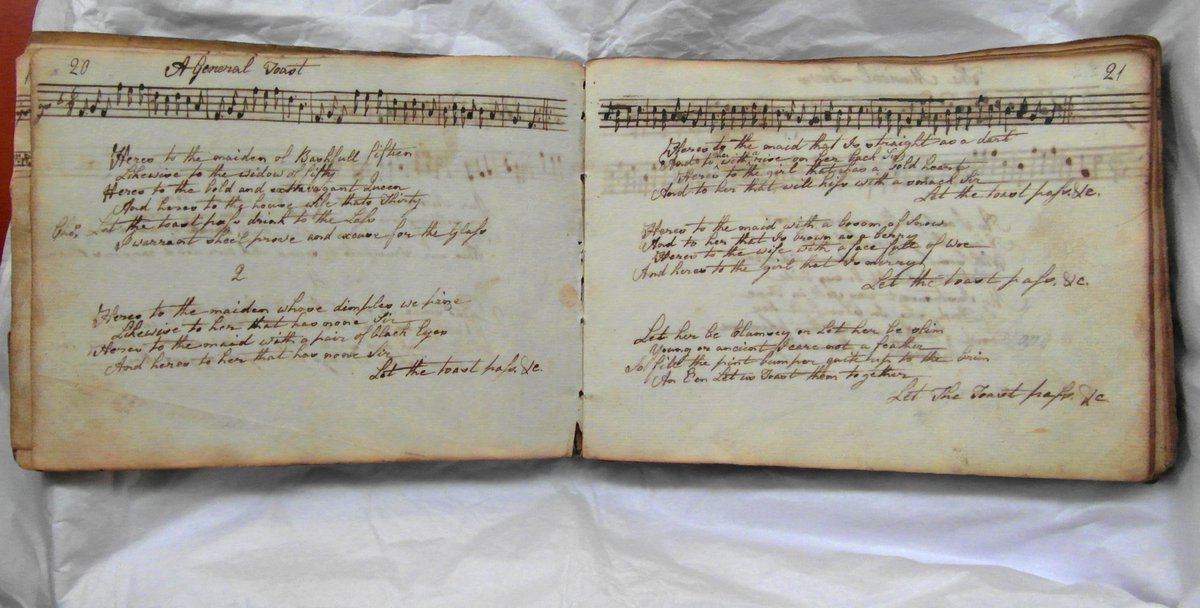 20
A General Toast
Heres to the maiden of Bashfull fifteen
Likewise to the widow of fifty
Heres to the bold and extravagant Queen
And heres to the house wife thats thirty
Chos. Let the toast pass drink to the Lass
I warrant shee'l prove and excuse for the Glass
2
Heres to the maiden whose dimples we prize
Likewise to her that has none Sir
Heres to the maid with a pair of black Eyes
And heres to her that has none Sir
Let the toast pass. &c.
21
Heres to the maid that Is straight as a dart
And to her with a rise on her back Sir
Heres to the girl that has a bold heart
And to her that will kiss with a smack Sir
Let the toast pass, &c.
Heres to the maid with a bosom of snow
And to her that Is brown as a berry
Heres to the wife with a face full of woe
And heres to the girl that Is merry
Let the toast pass. &c.
Let her be Clumsey or Let her be slim
Young or ancient I care not a feather
So fill the pint bumper quite up to the brim
An E'en Let us Toast them together
Let The Toast pass. &c